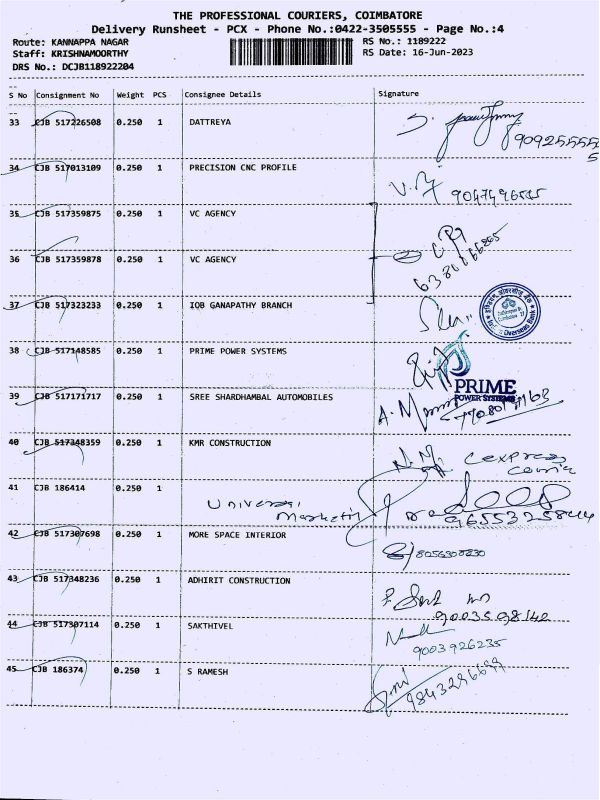 THE PROFESSIONAL COURIERS, COIMBATORE
Delivery Runsheet - PCX - Phone No.:0422-3505555 - Page No.:4
Route: KANNAPPA NAGAR RS No.: 1189222
Staff: KRISHNAMOORTHY RS Date: 16-Jun-2023
DRS No.: DCJB118922204
S No Consignment No Weight PCS Consignee Details Signature
33 CJB 517226508 0.250 1 DATTREYA
34 CJB 517013109 0.250 1 PRECISION CNC PROFILE
35 CJB 517359875 0.250 1 VC AGENCY
36 CJB 517359878 0.250 1 VC AGENCY
37 CJB 517323233 0.250 1 IOB GANAPATHY BRANCH
38 CJB 517148585 0.250 1 PRIME POWER SYSTEMS
PRIME
POWER SYSTEMS
39 CJB 517171717 0.250 1 SREE SHARDHAMBAL AUTOMOBILES
40 CJB 517348359 0.250 1 KMR CONSTRUCTION
41 CJB 186414 0.250 1
42 CJB 517307698 0.250 1 MORE SPACE INTERIOR 8056308230
43 CJB 517348236 0.250 1 ADHIRIT CONSTRUCTION
44 CJB 517307114 0.250 1 SAKTHIVEL 9003926235
45 CJB 186374 0.250 1 S RAMESH 9843296699